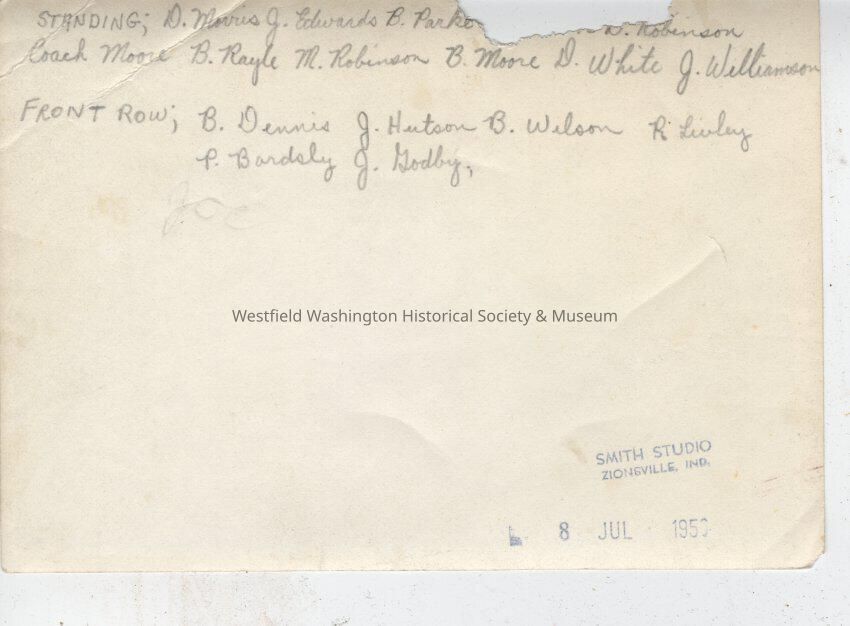 STANDING; D. Morris J. Edwards B. Parke D. Robinson
Coach Moore B. Rayle M. Robinson B. Moore D. White J. Williamson
FRONT ROW; B. Dennis J. Hutson B. Wilson R Livley
P. Bardsly J. Godby,
Joe
Westfield Washington Historical Society & Museum
SMITH STUDIO
ZIONSVILLE, IND.
8 JUL